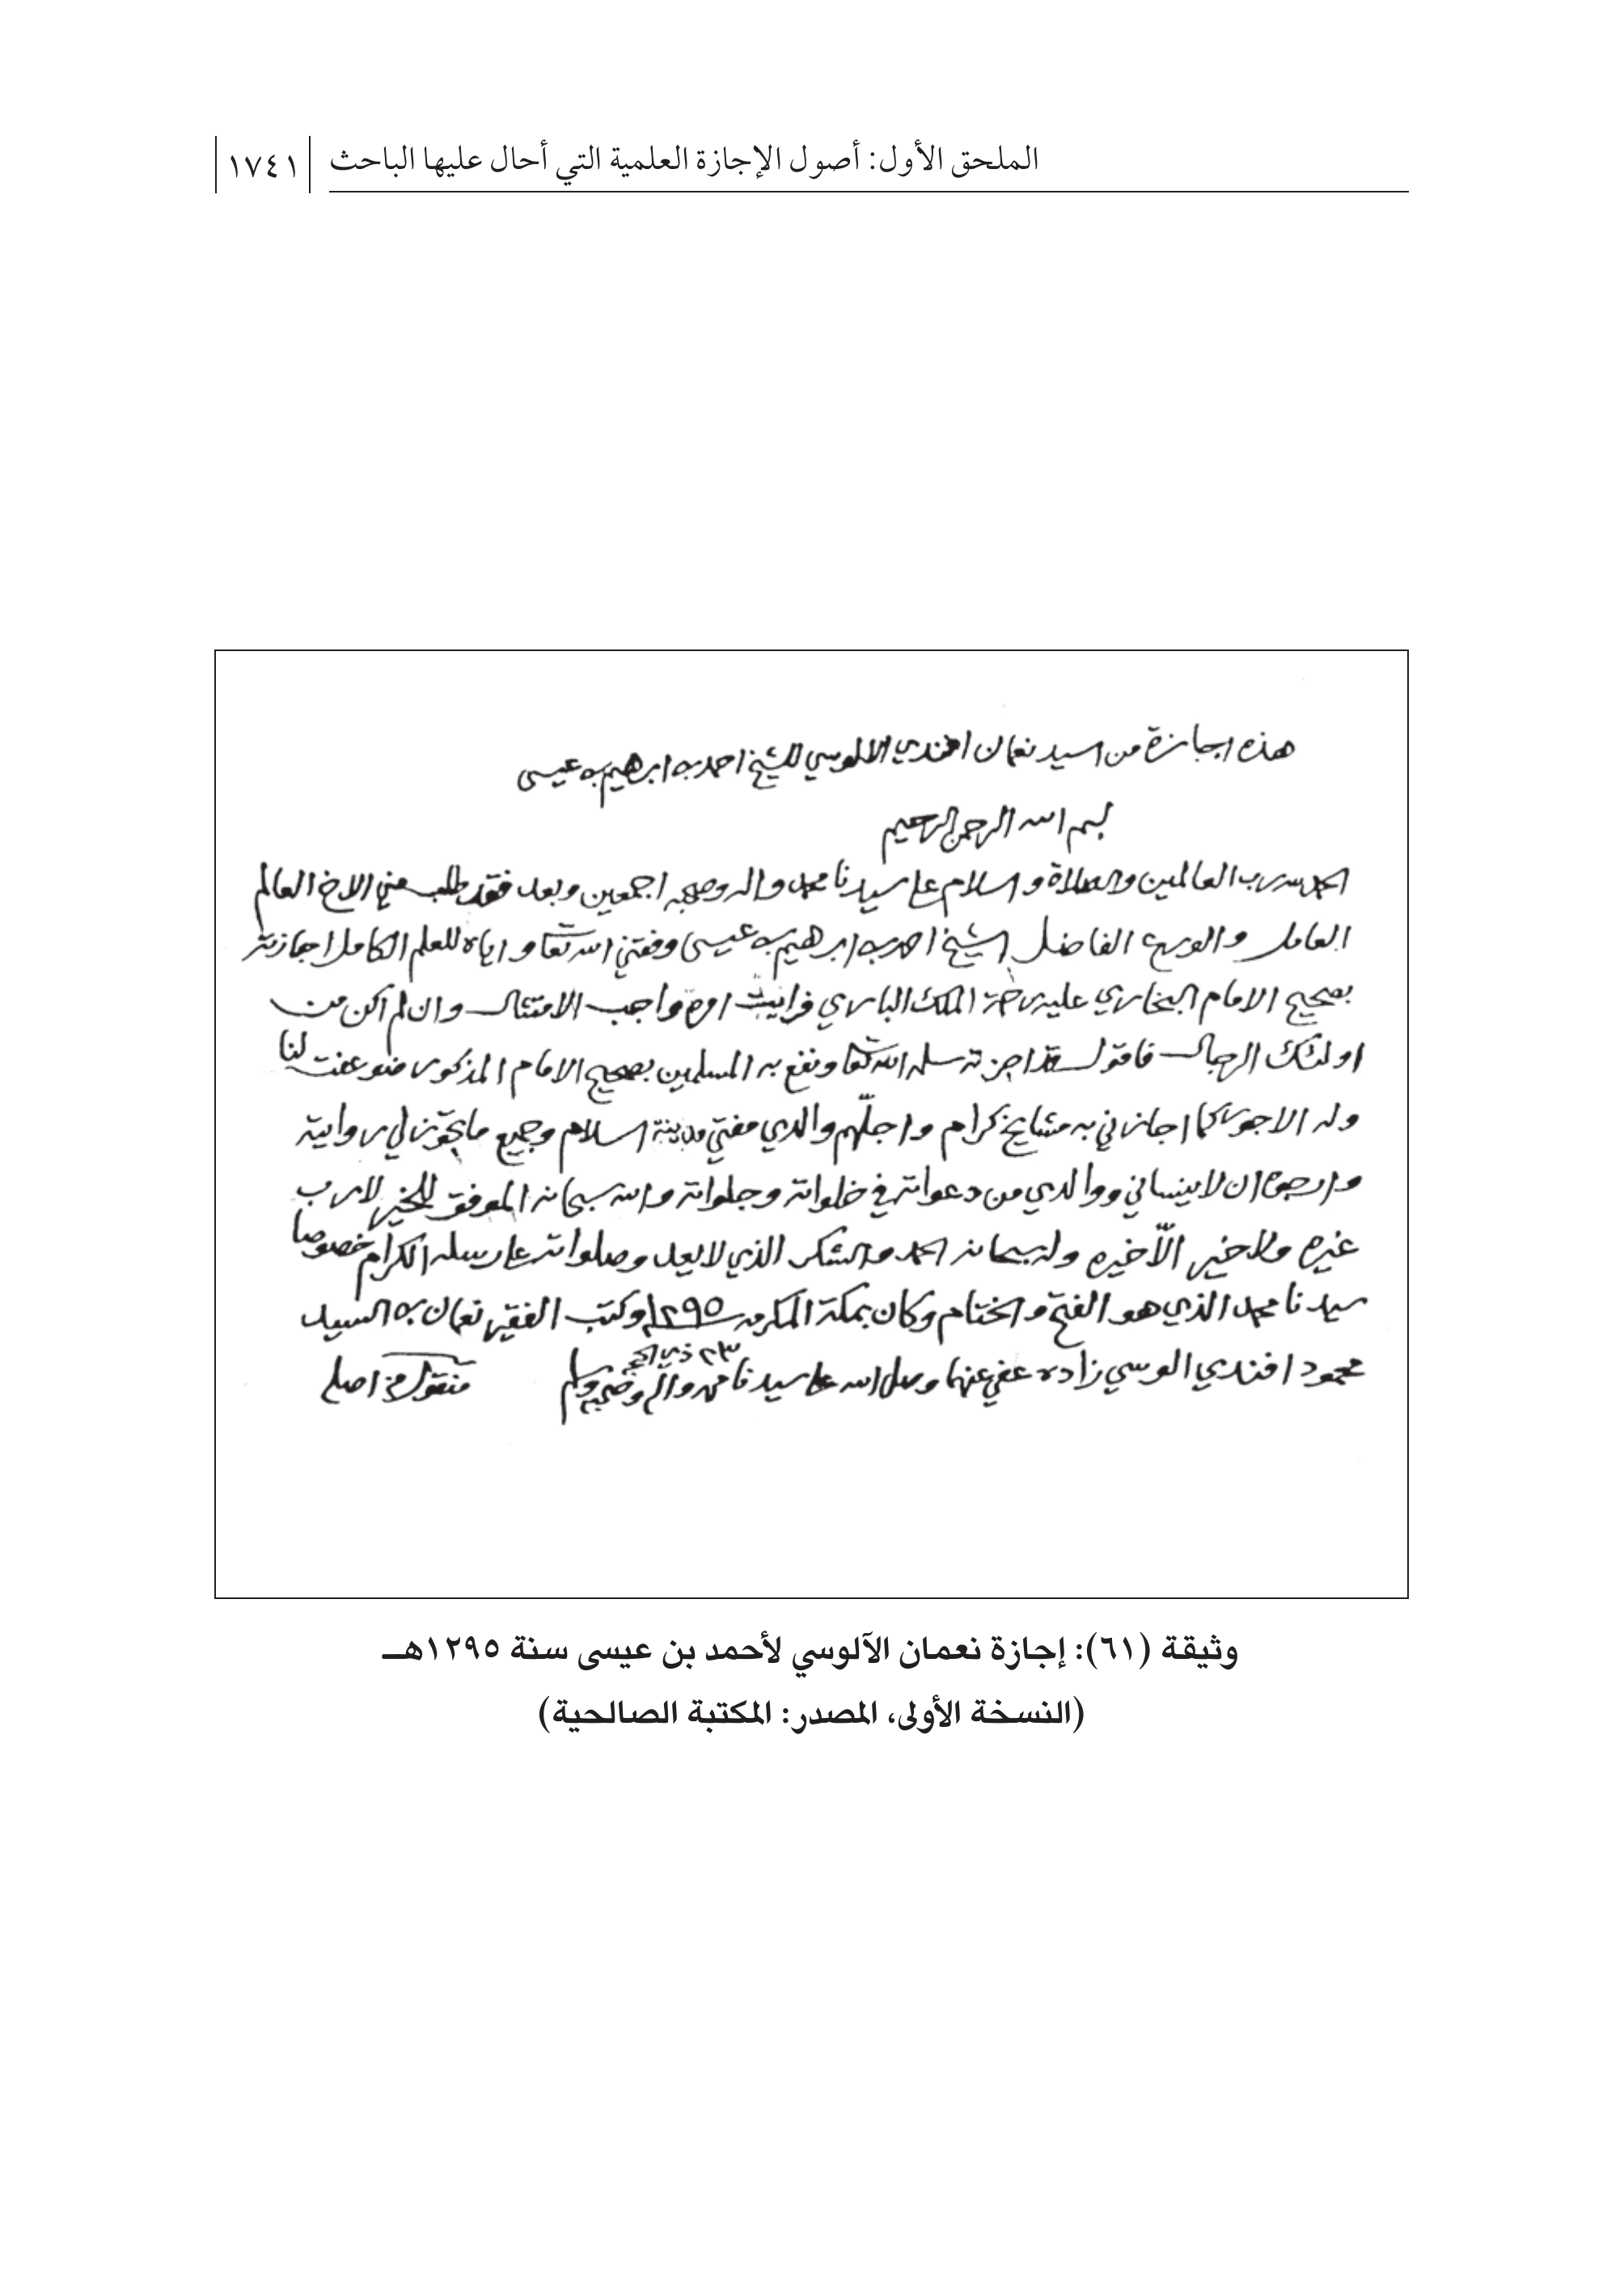 الملحق الأول: أصول الإجازة العلمية التي أحال عليها الباحث ١٧٤١
هذه اجازة من السيد نعمان افندي الالوسي للشيخ احمد بن ابرهيم بن عيسى
بسم الله الرحمن الرحيم
الحمد لله رب العالمين والصلاة والسلام على سيدنا محمد واله وصحبه اجمعين وبعد فقد طلب مني الاخ العالم
العامل والورع الفاضل الشيخ احمد بن ابرهيم بن عيسى وفقني الله تعا واياه للعلم الكامل اجازته
بصحيح الامام البخاري عليه رحمة الملك الباري فرايت امره واجب الامتثال وان لم اكن من
اولئك الرجال فاقول قد اجزته سلمه الله تعا ونفع به المسلمين بصحيح الامام المذكور ضوعفت لنا
وله الاجور كما اجازني به مشايخ كرام واجلّهم والدي مفتي مدينة السلام وجميع ما يجوز لي روايته
وارجوه ان لا ينساني ووالدي من دعواته في خلواته وجلواته والله سبحانه الموفق للخير لا رب
غيره ولا خير الّا خيره وله سبحانه الحمد والشكر الذي لا يعد وصلواته على رسله الكرام خصوصا
سيدنا محمد الذي هو الفتح والختام وكان بمكة المكرمه ١٢٩٥ وكتب الفقير نعمان بن السيد
٢٣ ذي الحجة
محمود افندي الوسي زاده عفي عنهما وصلى الله على سيدنا محمد واله وصحبه وسلم منقول من اصله
وثيقة (٦١): إجازة نعمان الآلوسي لأحمد بن عيسى سنة ١٢٩٥هـ
(النسخة الأولى، المصدر: المكتبة الصالحية)